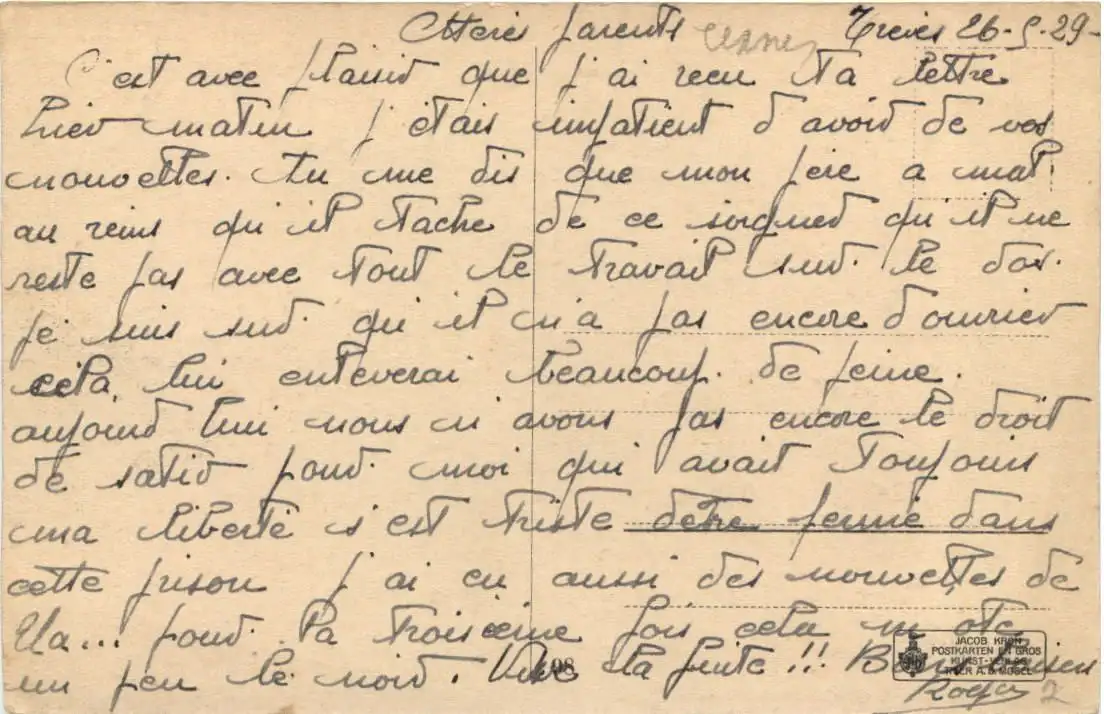 Chers parents Treves 26-5-29-
C'est avec plaisir que j'ai recu ta lettre
hier matin j'étais impatient d'avoir de vos
nouvelles. tu me dis que mon père a mal
au reins qu'il tache de ce soigner qu'il ne
reste pas avec tout le travail sur le dos.
je suis sur qu'il n'a pas encore d'ouvrier
cela lui enleverai beaucoup de peine.
aujourd'hui nous n'avons pas encore le droit
de satir pour moi qui avait toujours
ma liberté s'est triste d'etre fermé dans
cette prison j'ai eu aussi des nouvelles de
Ela... pour la troisieme fois cela m'ote
un peu le noir. Vive la fuite!! Bons baisers
Roger 2
98
JACOB KRON
POSTKARTEN EN GROS
KUNST-VERLAG
TRIER A. D. MOSEL